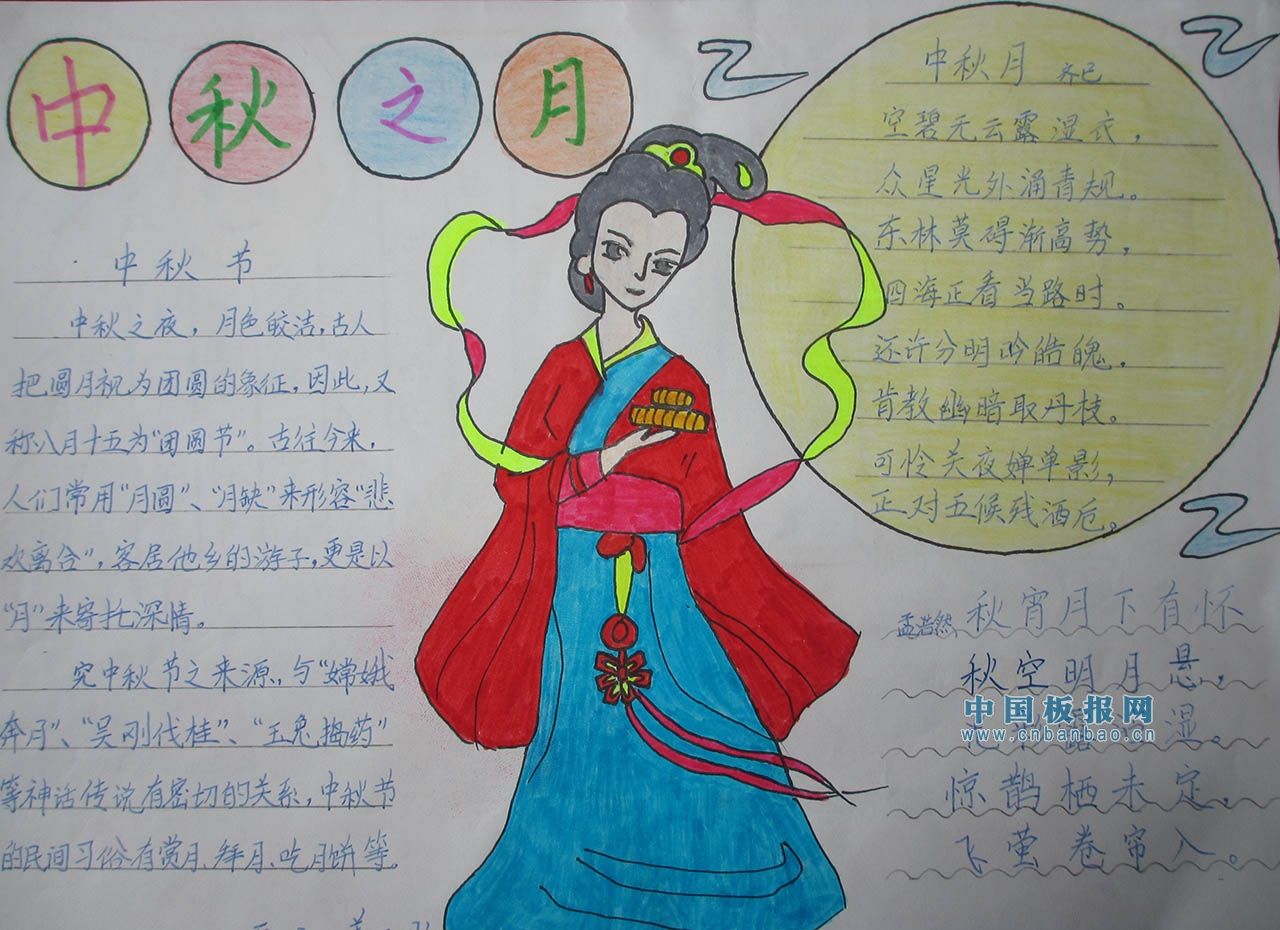 中秋之月
中秋节
中秋之夜，月色皎洁，古人
把圆月视为团圆的象征，因此，又
称八月十五为“团圆节”。古往今来，
人们常用“月圆”、“月缺”来形容“悲
欢离合”，客居他乡的游子，更是以
“月”来寄托深情。
究中秋节之来源，与“嫦娥
奔月”、“吴刚伐桂”、“玉兔捣药”
等神话传说有密切的关系，中秋节
的民间习俗有赏月、拜月、吃月饼等。
中秋月 齐己
空碧无云露湿衣，
众星光外涌青规。
东林莫碍渐高势，
四海正看当路时。
还许分明吟皓魄，
肯教幽暗取丹枝。
可怜关夜婵单影，
正对五候残酒卮。
孟浩然 秋宵月下有怀
秋空明月悬，
湿。
惊鹊栖未定，
飞萤卷帘入。
中国板报网
www.cnbanbao.cn